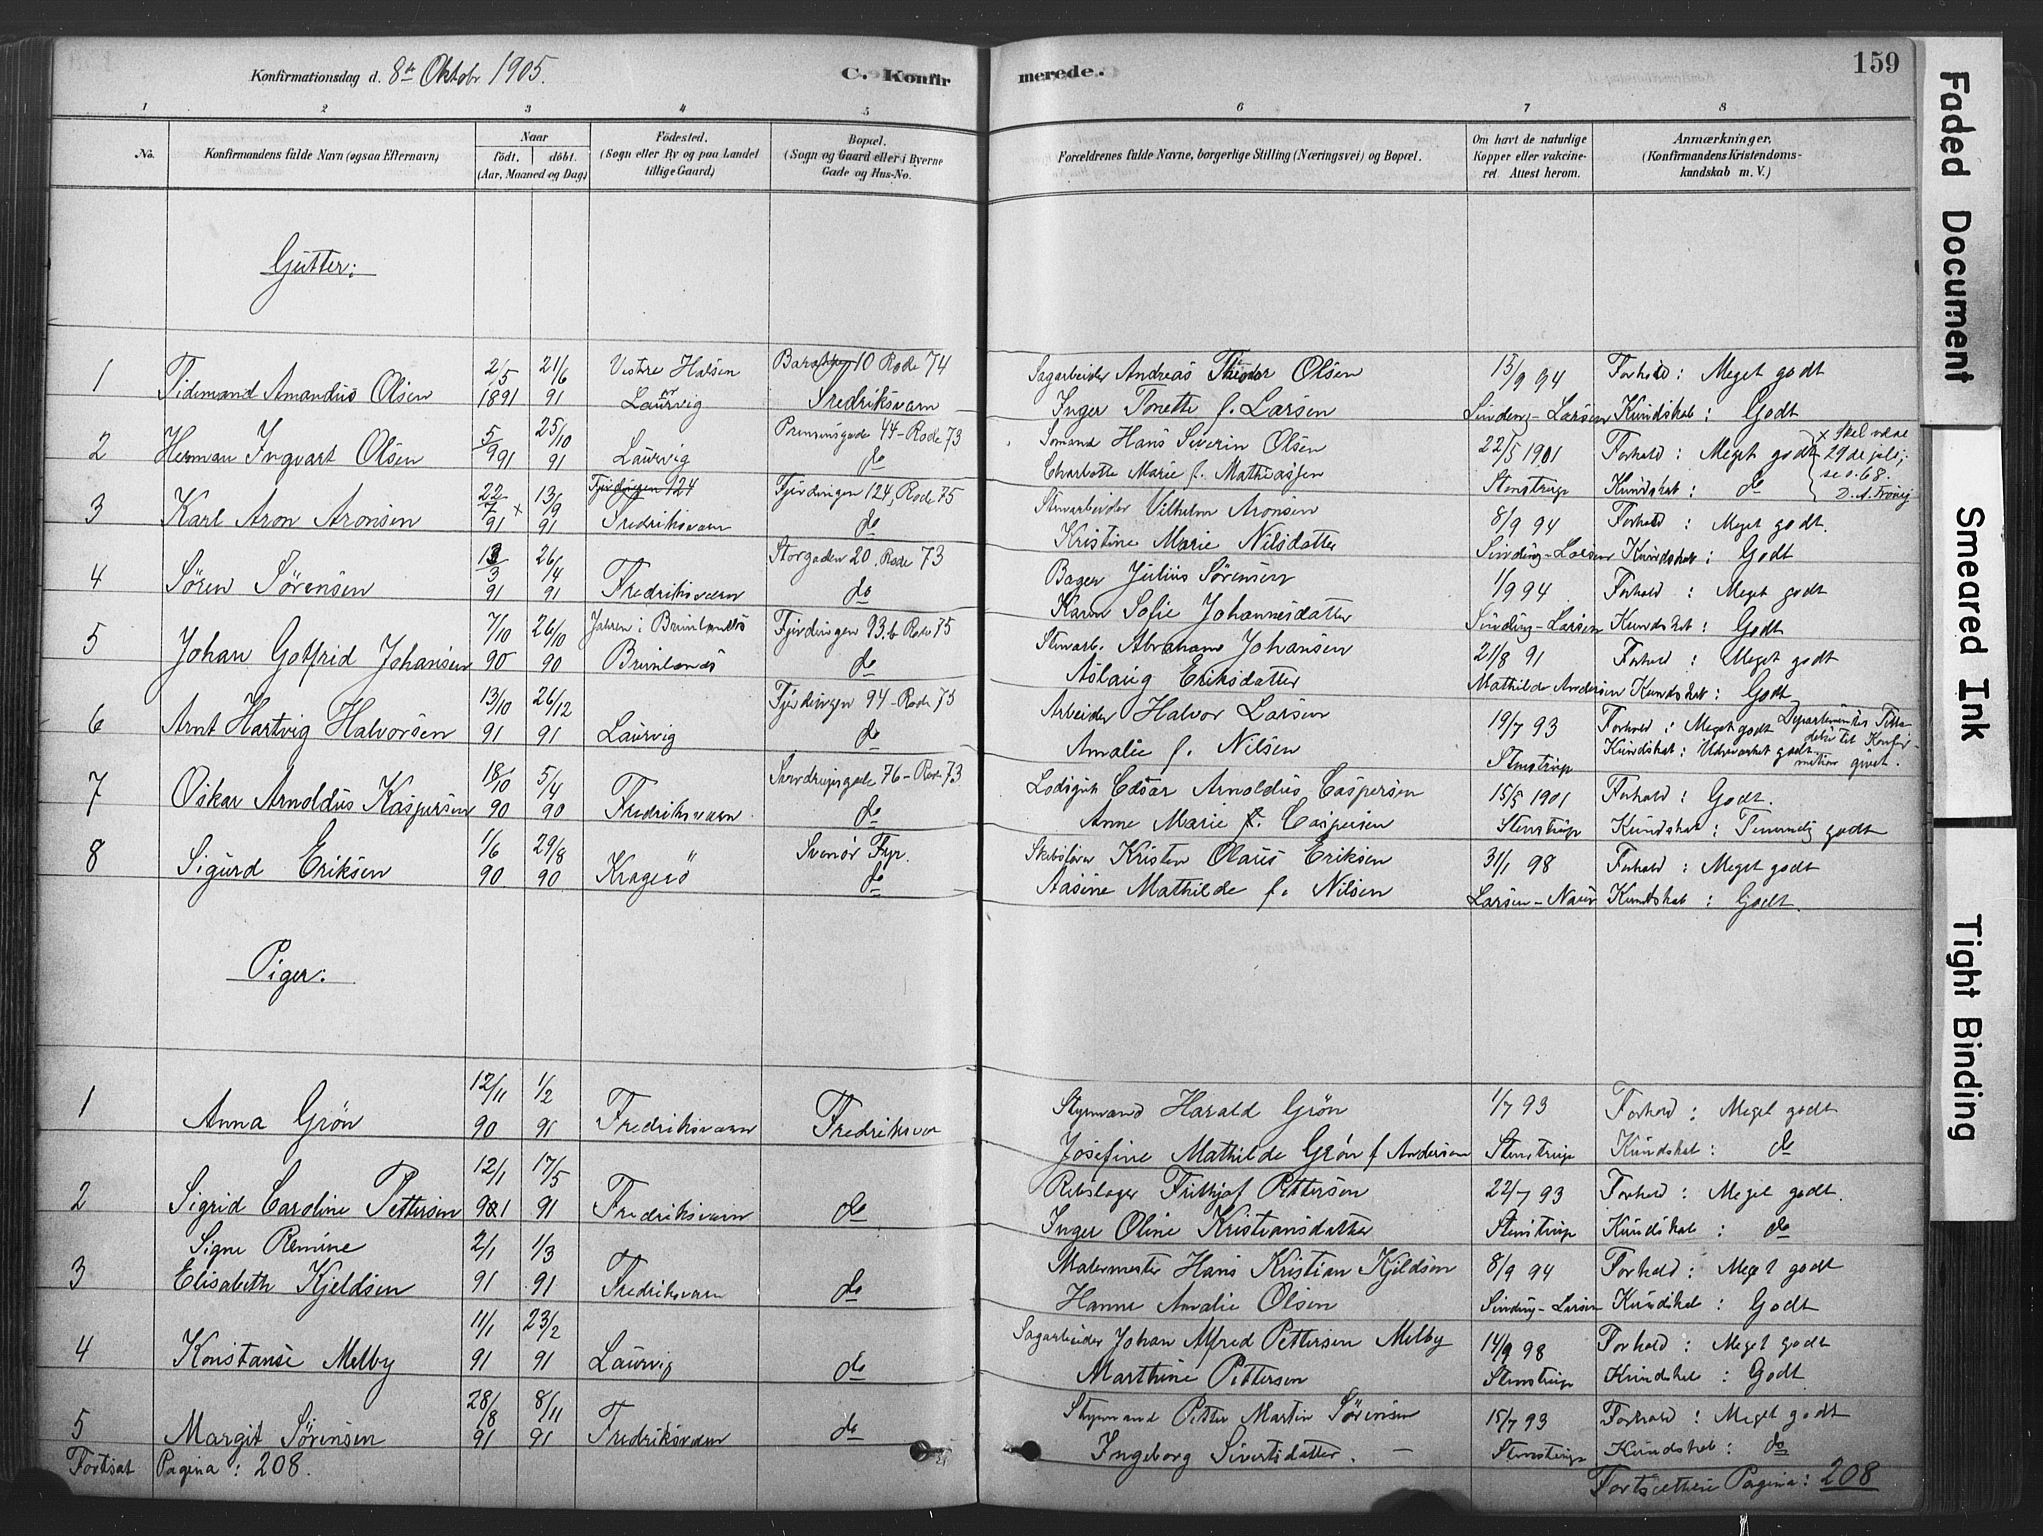 Konfirmationsdag d. 8de Oktobr 1905.
C. Konfirmerede.
159
1 2 3 4 5 6 7 8
No.
Konfirmandens fulde Navn (ogsaa Efternavn)
Naar
födt. döbt.
(Aar, Maaned og Dag)
Födested.
(Sogn eller By og paa Landet
tillige Gaard)
Bopæl.
(Sogn og Gaard eller i Byerne
Gade og Hus-No.
Forældrenes fulde Navne, borgerlige Stilling (Næringsvei) og Bopæl.
Om havt de naturlige
Kopper eller vakcine-
ret. Attest herom.
Anmærkninger,
(Konfirmandens Kristendoms-
kundskab m. V.)
Gutter:
1 Tidemand Amandus Olsen 2/5 1891 21/6 91 Vestre Halsen Laurvig 10 Rode 74 Fredriksværn
Sagarbeider Andreas Theodor Olsen 15/9 94 Forhold: Meget godt
Inger Tonette f. Larsen Sinding-Larsen Kundskab: Godt
2 Herman Ingvart Olsen 5/9 91 25/10 91 Laurvig Prinsensgade 44 - Rode 73 do
Sømand Hans Severin Olsen 22/5 1901 Forhold: Meget godt
Charlotte Marie f. Mathiassen Stenstrup Kundskab: do
x Skal være
29de juli;
se o. 68.
3 Karl Aron Aronsen 22/7 91 x 13/9 91 Fjerdingen 124 Fredriksværn Fjerdingen 124, Rode 75 do
Stenarbeider Vilhelm Aronsen 8/9 94 Forhold: Meget godt.
Kristine Marie Nilsdatter Sinding-Larsen Kundskab: Godt
4 Søren Sørensen 13/3 91 26/4 91 Fredriksværn Storgaden 20, Rode 73 do
Bager Julius Sørensen 1/9 94 Forhold: Meget godt
Karen Sofie Johannesdatter Sinding-Larsen Kundskab: Godt
5 Johan Gotfrid Johansen 7/10 90 26/10 90 Jahren i Brunlanæs Brunlanæs Fjerdingen 93.b Rode 75 do
Stenarb. Abraham Johansen 21/8 91 Forhold: Meget godt
Aslaug Eriksdatter Mathilde Andersen Kundskab: Godt
6 Arnt Hartvig Halvorsen 13/10 91 26/12 91 Laurvig Fjerdingen 94 - Rode 75 do
Arbeider Halvor Larsen 19/7 93 Forhold: Meget godt Departementets Tilla-
Amalie f. Nilsen Stenstrup Kundskab: Udmærket godt delse til Konfir-
mation givet.
7 Oskar Arnoldus Kaspersen 18/10 90 5/4 90 Fredriksværn Sverdrupsgade 76 - Rode 73 do
Lodsgut Edsar Arnoldus Caspersen 15/5 1901 Forhold: Godt.
Anne Marie f. Caspersen Stenstrup Kundskab: Temmelig godt
8 Sigurd Eriksen 1/6 90 29/8 90 Kragerö Svenör Fyr. do
Skibsfører Kristen Olaus Eriksen 31/1 98 Forhold: Meget godt
Aasine Mathilde f. Nilsen Larsen-Naur Kundskab: Godt.
Piger:
1 Anna Grøn 12/11 90 1/2 91 Fredriksværn Fredriksvær
Styrmand Harald Grøn 1/7 93 Forhold: Meget godt
Josefine Mathilde Grøn f Andersen Stenstrup Kundskab: do
2 Sigrid Caroline Pettersen 12/1 91 17/5 91 Fredriksværn do
Rebslager Frithjof Pettersen 22/7 93 Forhold: Meget godt.
Inger Oline Kristiansdatter Stenstrup Kundskab: do
3 Signe Remine
Elisabeth Kjeldsen 2/1 91 1/3 91 Fredriksværn do
Malermester Hans Kristian Kjeldsen 8/9 94 Forhold: Meget godt
Hanne Amalie Olsen Sinding-Larsen Kundskab: Godt
4 Konstanse Melby 11/1 91 23/2 91 Laurvig do
Sagarbeider Johan Alfred Pettersen Melby 14/9 98 Forhold: Meget godt
Marthine Pettersen Stenstrup Kundskab: Godt
5 Margit Sørensen 28/8 91 8/11 91 Fredriksværn do
Styrmand Petter Martin Sørensen 15/7 93 Forhold: Meget godt
Ingeborg Sivertsdatter. Stenstrup Kundskab: do
Fortsat Pagina: 208.
Fortsættelse Pagina: 208
Faded Document
Smeared Ink
Tight Binding